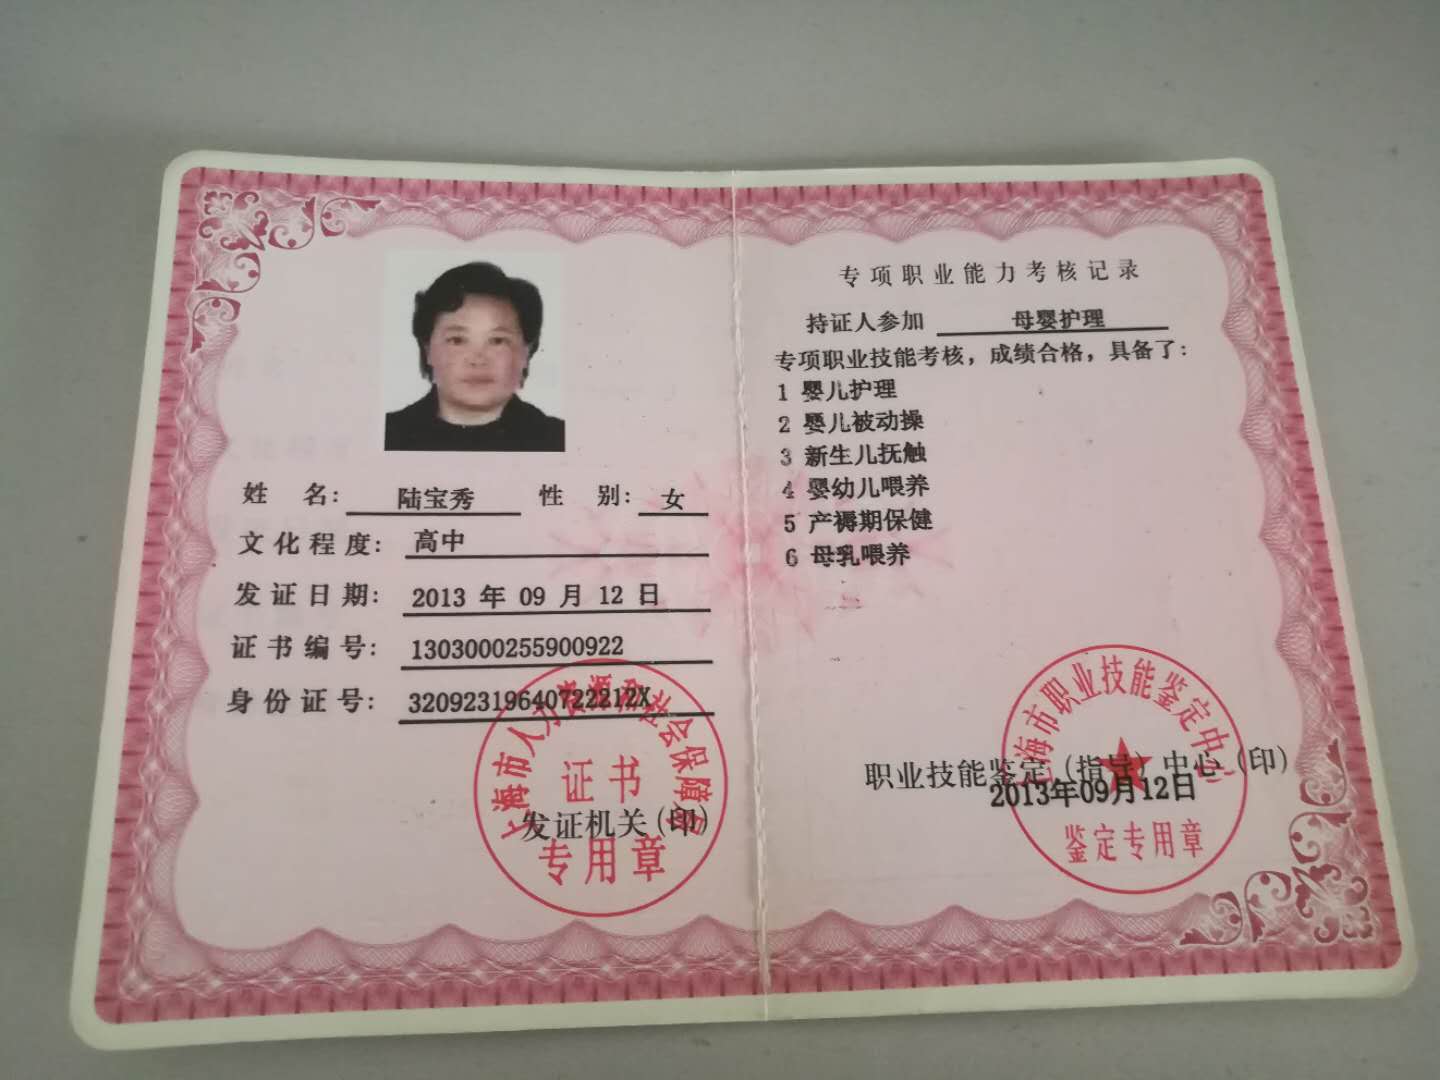 姓 名: 陆宝秀 性 别: 女
文化程度: 高中
发证日期: 2013 年 09 月 12 日
证书编号: 1303000255900922
身份证号: 32092319640722212X
上海市人力资源和社会保障局
证书
发证机关(印)
专用章
专项职业能力考核记录
持证人参加 母婴护理
专项职业技能考核，成绩合格，具备了:
1 婴儿护理
2 婴儿被动操
3 新生儿抚触
4 婴幼儿喂养
5 产褥期保健
6 母乳喂养
上海市职业技能鉴定中心
职业技能鉴定(指导)中心(印)
2013年09月12日
鉴定专用章